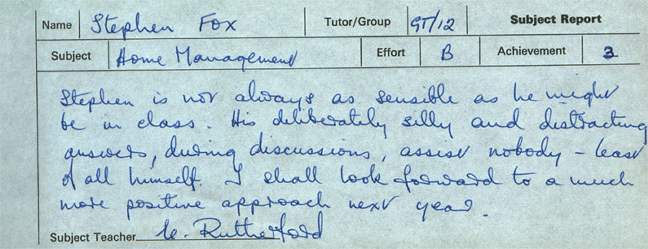 Name Stephen Fox Tutor/Group 9T/12 Subject Report
Subject Home Management Effort B Achievement 3
Stephen is not always as sensible as he might
be in class. His deliberately silly and distracting
answers, during discussions, assist nobody – least
of all himself. I shall look forward to a much
more positive approach next year.
Subject Teacher Rutherford